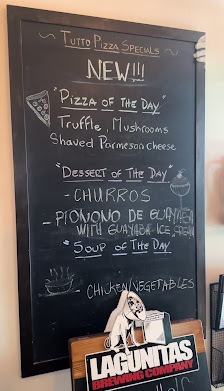 TUTTO PIZZA SPECIALS
NEW!!!
"PIZZA OF THE DAY"
Truffle, Mushrooms
Shaved Parmesan cheese
"DESSERT OF THE DAY"
- CHURROS
- PIONONO DE GUAYABA
WITH GUAYABA ICE CREAM
"SOUP OF THE DAY
- CHICKEN/VEGETABLES
LAGUNITAS
BREWING COMPANY